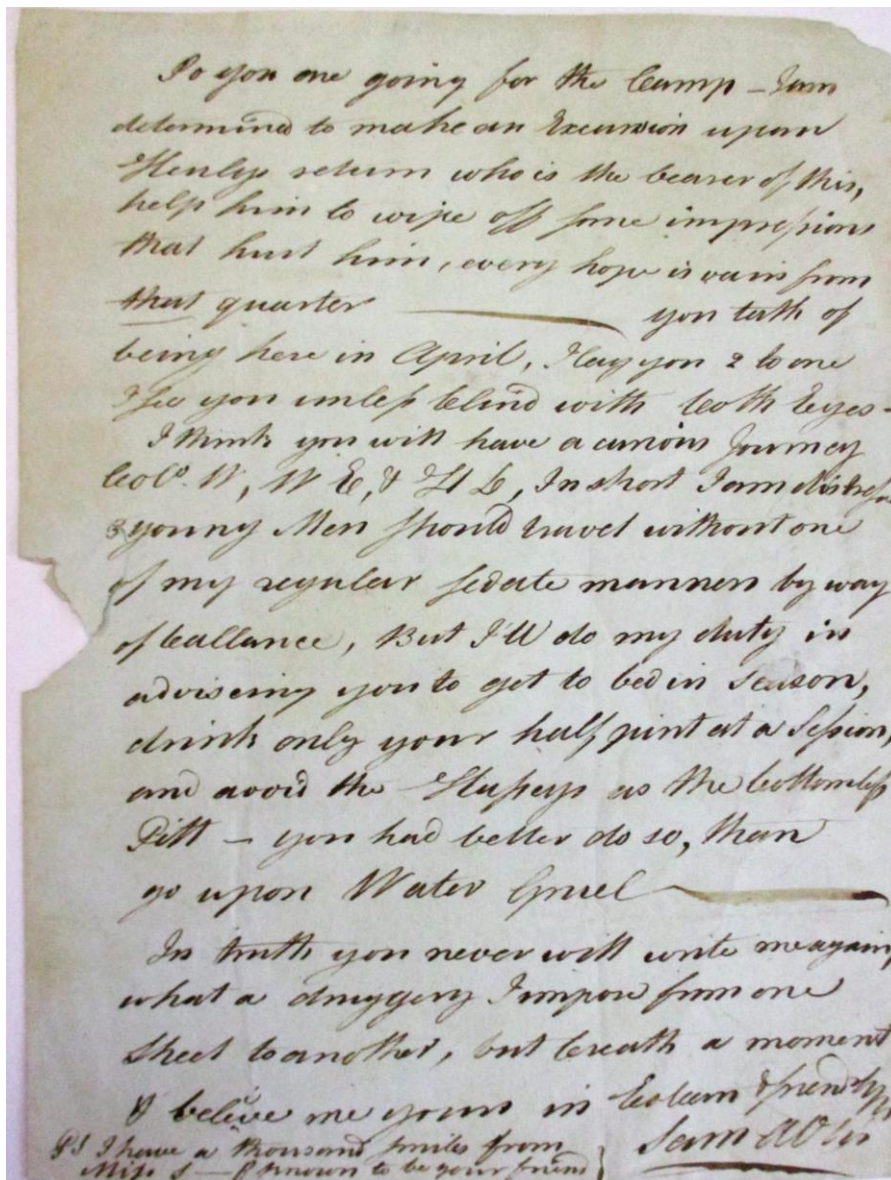 So you are going for the Camp – I am
determind to make an Excursion upon
Henlys return who is the bearer of this,
help him to wipe off some impressions
that hurt him, every hope is vain from
that quarter ——— you talk of
being here in April, I lay you 2 to one
I see you unless blind with both Eyes –
I think you will have a curious Journey
Colo. W, W E, & H L, In short I am distress
3 young Men should travel without one
of my regular sedate manners by way
of ballance, But I'll do my duty in
adviseing you to get to bed in season,
drink only your half pint at a Session,
and avoid the Hussys as the bottomless
Pitt – you had better do so, than
go upon Water Gruel ———
In truth you never will write me again,
what a druggery I impose from one
sheet to another, but breath a moment
& believe me yours in Esteem & friendship
Sam A Otis
PS I have a thousand smiles from
Miss S— known to be your friend